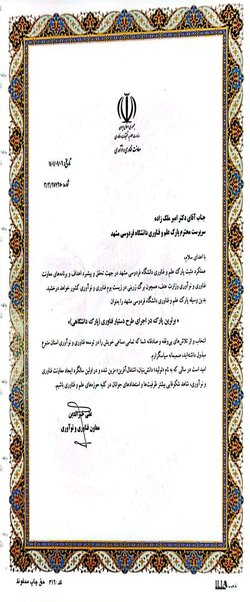 جمهوری اسلامی ایران
وزارت علوم، تحقیقات و فناوری
معاونت فناوری و نوآوری
تاریخ:
شماره:
جناب آقای دکتر امیر ملک زاده
سرپرست محترم پارک علم و فناوری دانشگاه فردوسی مشهد
با اهدای سلام،
عملکرد مثبت پارک علم و فناوری دانشگاه فردوسی مشهد در جهت تحقق و پیشبرد اهداف و برنامه‌های معاونت
فناوری و نوآوری وزارت عتف، همچون برگ زرینی در زیست بوم فناوری و نوآوری کشور خواهد درخشید.
بدین وسیله پارک علم و فناوری دانشگاه فردوسی مشهد را بعنوان
« برترین پارک در اجرای طرح دستیار فناوری (پارک دانشگاهی)»
انتخاب و از تلاش‌های بی‌وقفه و صادقانه شما که تمامی مساعی خویش را در توسعه فناوری و نوآوری استان متبوع
مبذول داشته‌اید، صمیمانه سپاسگزارم.
امید است در سالی که به نام «تولید؛ دانش‌بنیان، اشتغال‌آفرین» مزین شده و در اولین سالگرد ایجاد معاونت فناوری
و نوآوری، شاهد شکوفایی بیشتر ظرفیت‌ها و استعدادهای جوانان در کلیه حوزه‌های علم و فناوری باشیم.
علی خیرالدین
معاون فناوری و نوآوری
کد: ۳۱۶ حق چاپ محفوظ